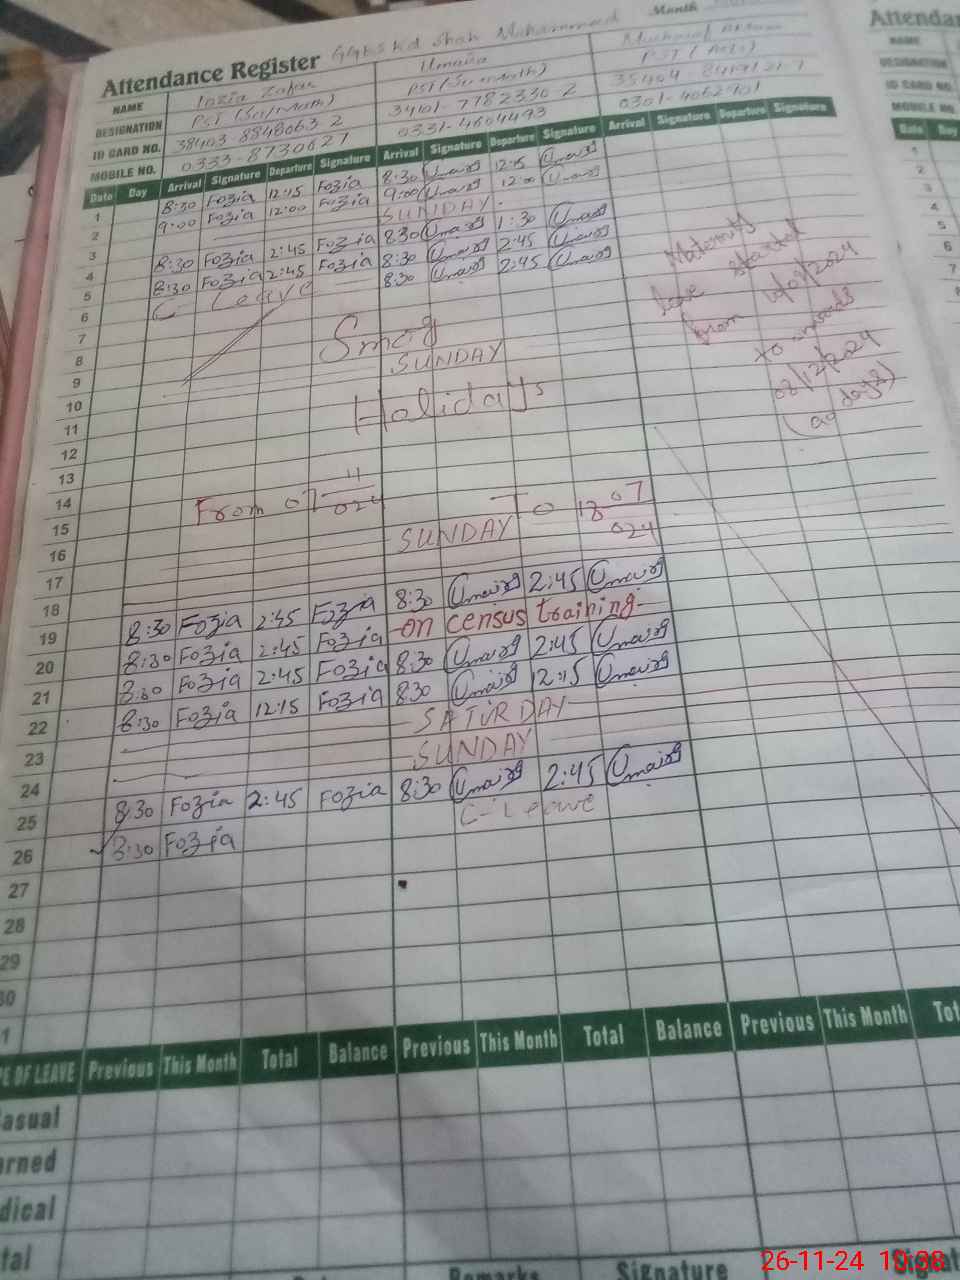 Attendance Register GGES Kd Shah Mohammad Month
NAME Fozia Zafar Umaira
DESIGNATION PST (Sci/Math) PST (Sci-math) PST (Arts)
ID CARD NO. 38403-8848063 2 34101-7782330 2
MOBILE NO. 0333-8730627 0331-4604493 0301-4062901
Date Day Arrival Signature Departure Signature Arrival Signature Departure Signature Arrival Signature Departure Signature
1 8:30 Fozia 12:15 Fozia 8:30 Umaira 12:15 Umaira
2 9:00 Fozia 12:00 Fozia 9:00 Umaira 12:00 Umaira
3 SUNDAY
4 8:30 Fozia 2:45 Fozia 8:30 Umaira 1:30 Umaira
5 8:30 Fozia 2:45 Fozia 8:30 Umaira 2:45 Umaira
6 C- Leave 8:30 Umaira 2:45 Umaira
Maternity
leave started
from
to onwards
02/12/2024
days)
7
8 Smog
9
10 SUNDAY
11 Holidays
12
13
14
15 From 07 11/024 To 18 07/024
16
17 SUNDAY
18
19 8:30 Fozia 2:45 Fozia 8:30 Umaira 2:45 Umaira
20 8:30 Fozia 2:45 Fozia on census training
21 8:30 Fozia 2:45 Fozia 8:30 Umaira 2:45 Umaira
22 8:30 Fozia 12:15 Fozia 8:30 Umaira 12:15 Umaira
23 SATURDAY
24 SUNDAY
25 8:30 Fozia 2:45 Fozia 8:30 Umaira 2:45 Umaira
26 8:30 Fozia C-Leave
27
28
29
30
1
PE OF LEAVE Previous This Month Total Balance Previous This Month Total Balance Previous This Month Tot
asual
arned
dical
tal
Remarks Signature Signat
Attendar
NAME
DESIGNATION
ID CARD NO.
MOBILE NO
Date Day
1
2
3
4
5
6
7
8
26-11-24